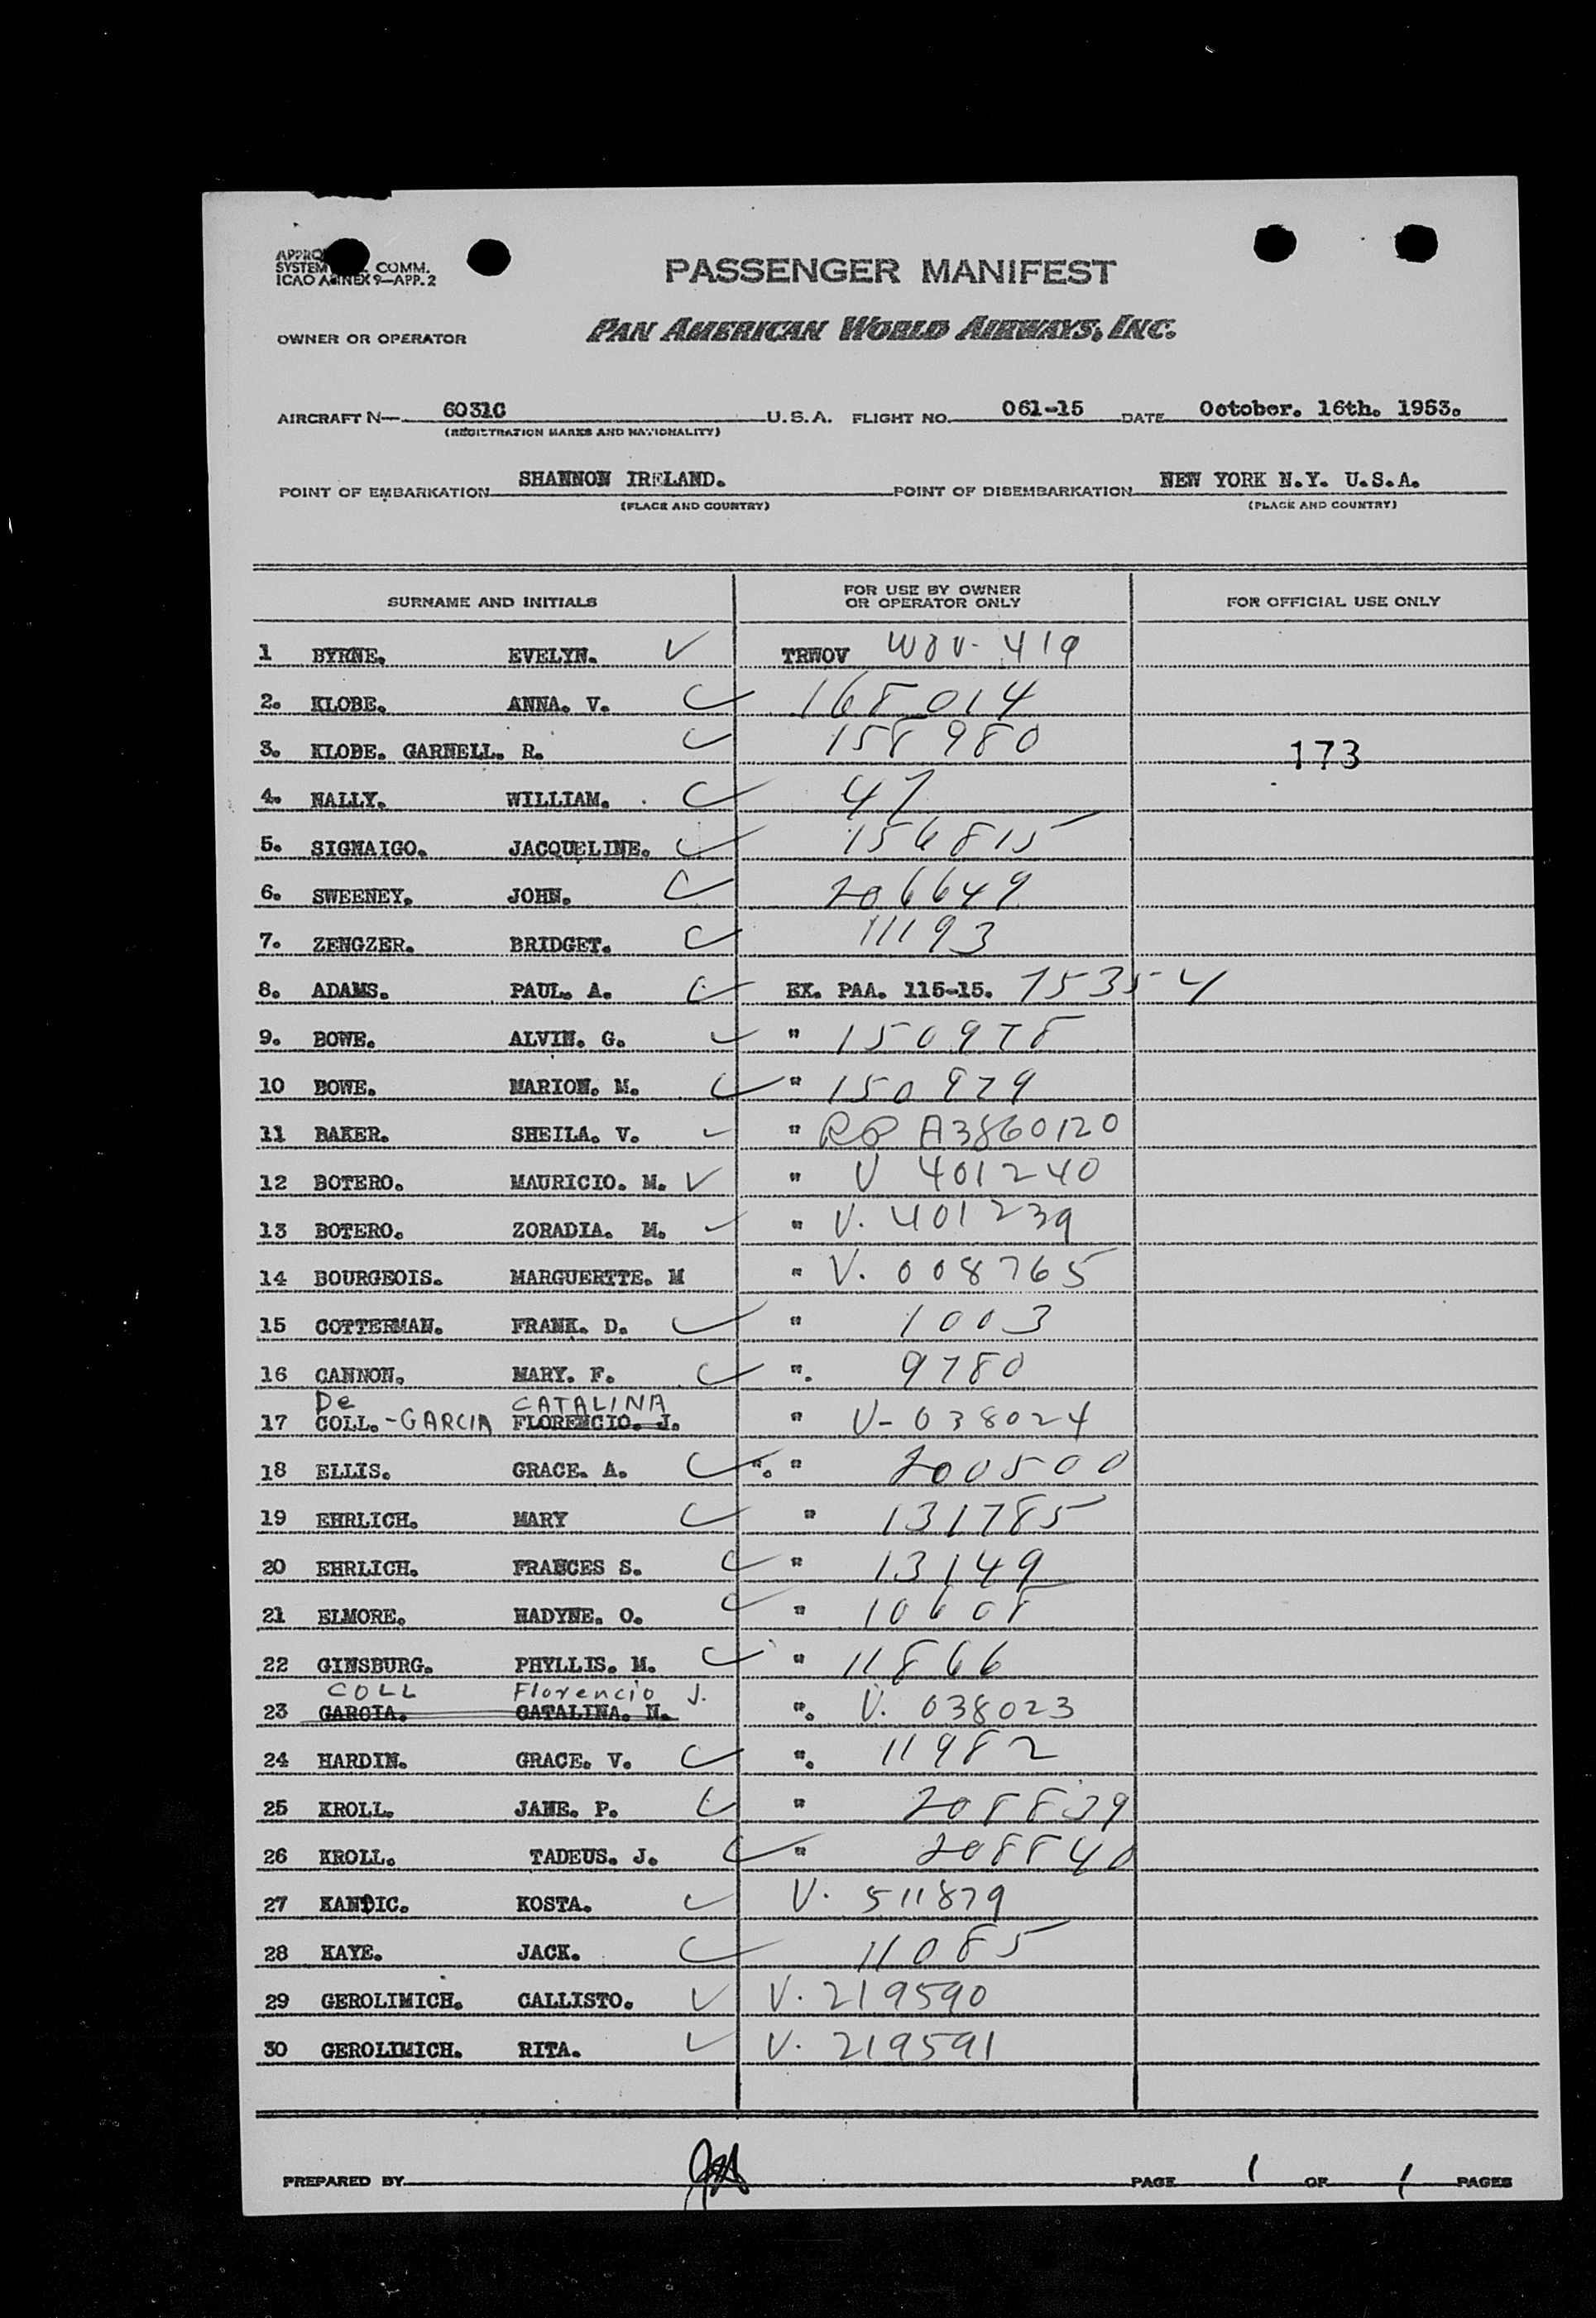 APPRO
SYSTEM COMM.
ICAO ANNEX 9—APP. 2
PASSENGER MANIFEST
OWNER OR OPERATOR PAN AMERICAN WORLD AIRWAYS, INC.
AIRCRAFT N— 6031C U.S.A. FLIGHT NO. 061-15 DATE October. 16th. 1953.
(REGISTRATION MARKS AND NATIONALITY)
POINT OF EMBARKATION SHANNON IRELAND. POINT OF DISEMBARKATION NEW YORK N.Y. U.S.A.
(PLACE AND COUNTRY) (PLACE AND COUNTRY)
SURNAME AND INITIALS FOR USE BY OWNER OR OPERATOR ONLY FOR OFFICIAL USE ONLY
1 BYRNE. EVELYN. ✓ TRWOV WOV- 419
2. KLOBE. ANNA. V. ✓ 168014
3. KLOBE. GARNELL. R. ✓ 158980 173
4. NALLY. WILLIAM. ✓ 47
5. SIGNAIGO. JACQUELINE. ✓ 156815
6. SWEENEY. JOHN. ✓ 206649
7. ZENGZER. BRIDGET. ✓ 11193
8. ADAMS. PAUL. A. ✓ EX. PAA. 115-15. 75354
9. BOWE. ALVIN. G. ✓ " 150978
10 BOWE. MARION. M. ✓ " 150979
11 BAKER. SHEILA. V. ✓ " RP A3860120
12 BOTERO. MAURICIO. M. ✓ " V 401240
13 BOTERO. ZORADIA. M. ✓ " V. 401239
14 BOURGEOIS. MARGUERTTE. M " V. 008765
15 COTTERMAN. FRANK. D. ✓ " 1003
16 CANNON. MARY. F. ✓ ". 9780
De CATALINA
17 COLL.-GARCIA FLORENCIO. J. " V- 038024
18 ELLIS. GRACE. A. ✓ ". " 200500
19 EHRLICH. MARY ✓ " 131785
20 EHRLICH. FRANCES S. ✓ " 13149
21 ELMORE. HADYNE. O. ✓ " 10608
22 GINSBURG. PHYLLIS. M. ✓ " 11866
COLL Florencio J.
23 GARCIA. CATALINA. N. ". V. 038023
24 HARDIN. GRACE. V. ✓ ". 11982
25 KROLL. JANE. P. ✓ " 208839
26 KROLL. TADEUS. J. ✓ " 208840
27 KANDIC. KOSTA. ✓ V. 511879
28 KAYE. JACK. ✓ 11085
29 GEROLIMICH. CALLISTO. ✓ V. 219590
30 GEROLIMICH. RITA. ✓ V. 219591
PREPARED BY PAGE 1 OF 1 PAGES